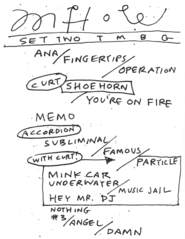 mHole
SET TWO TMBG
ANA/
FINGERTIPS/
OPERATION
CURT SHOEHORN/
YOU'RE ON FIRE
MEMO
ACCORDION
SUBLIMINAL/
FAMOUS/
WITH CURT! PARTICLE
MINK CAR
UNDERWATER/
MUSIC JAIL
HEY MR. DJ
NOTHING
#3/
ANGEL/
DAMN